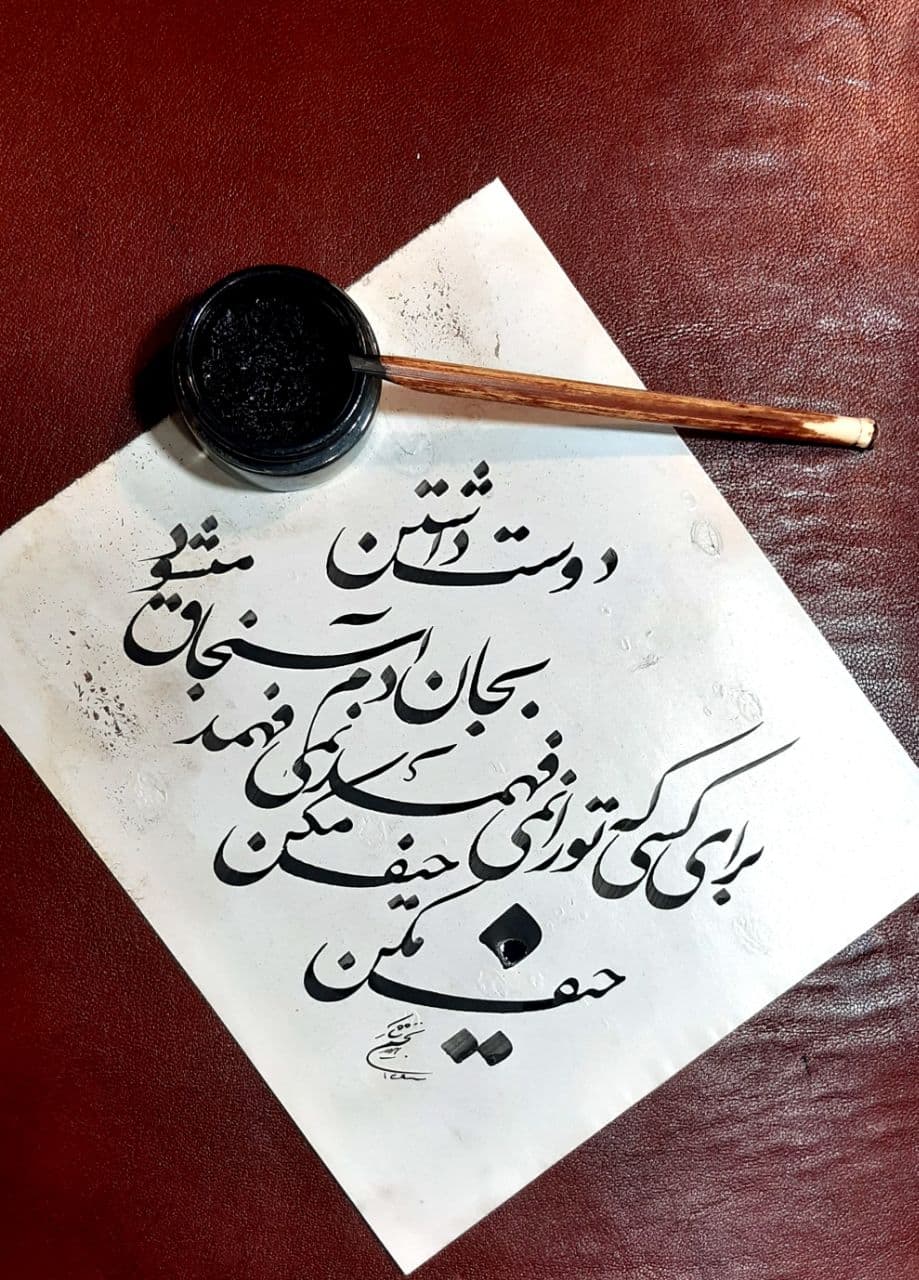 دوست داشتن
بجان آدم سنجاق میشود
برای کسی که تو را نمی فهمد
نمی فهمد
حیف مکن
حیف مکن